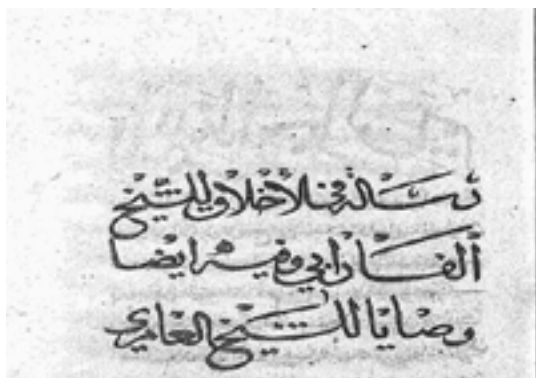 رسالة في الاخلاق للشيخ
الفارابي وفيه ايضا
وصايا للشيخ العامري